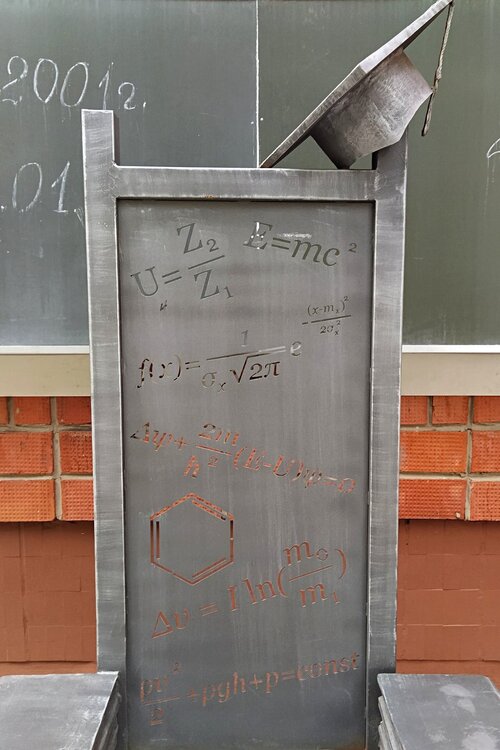 2001г.
01
U=Z₂/Z₁
E=mc²
f(x)=1/(σₓ√2π) e^(-(x-mₓ)²/2σₓ²)
Δψ+2m/ħ²(E-U)ψ=0
Δυ = I ln(m₀/m₁)
ρυ²/2+ρgh+p=const